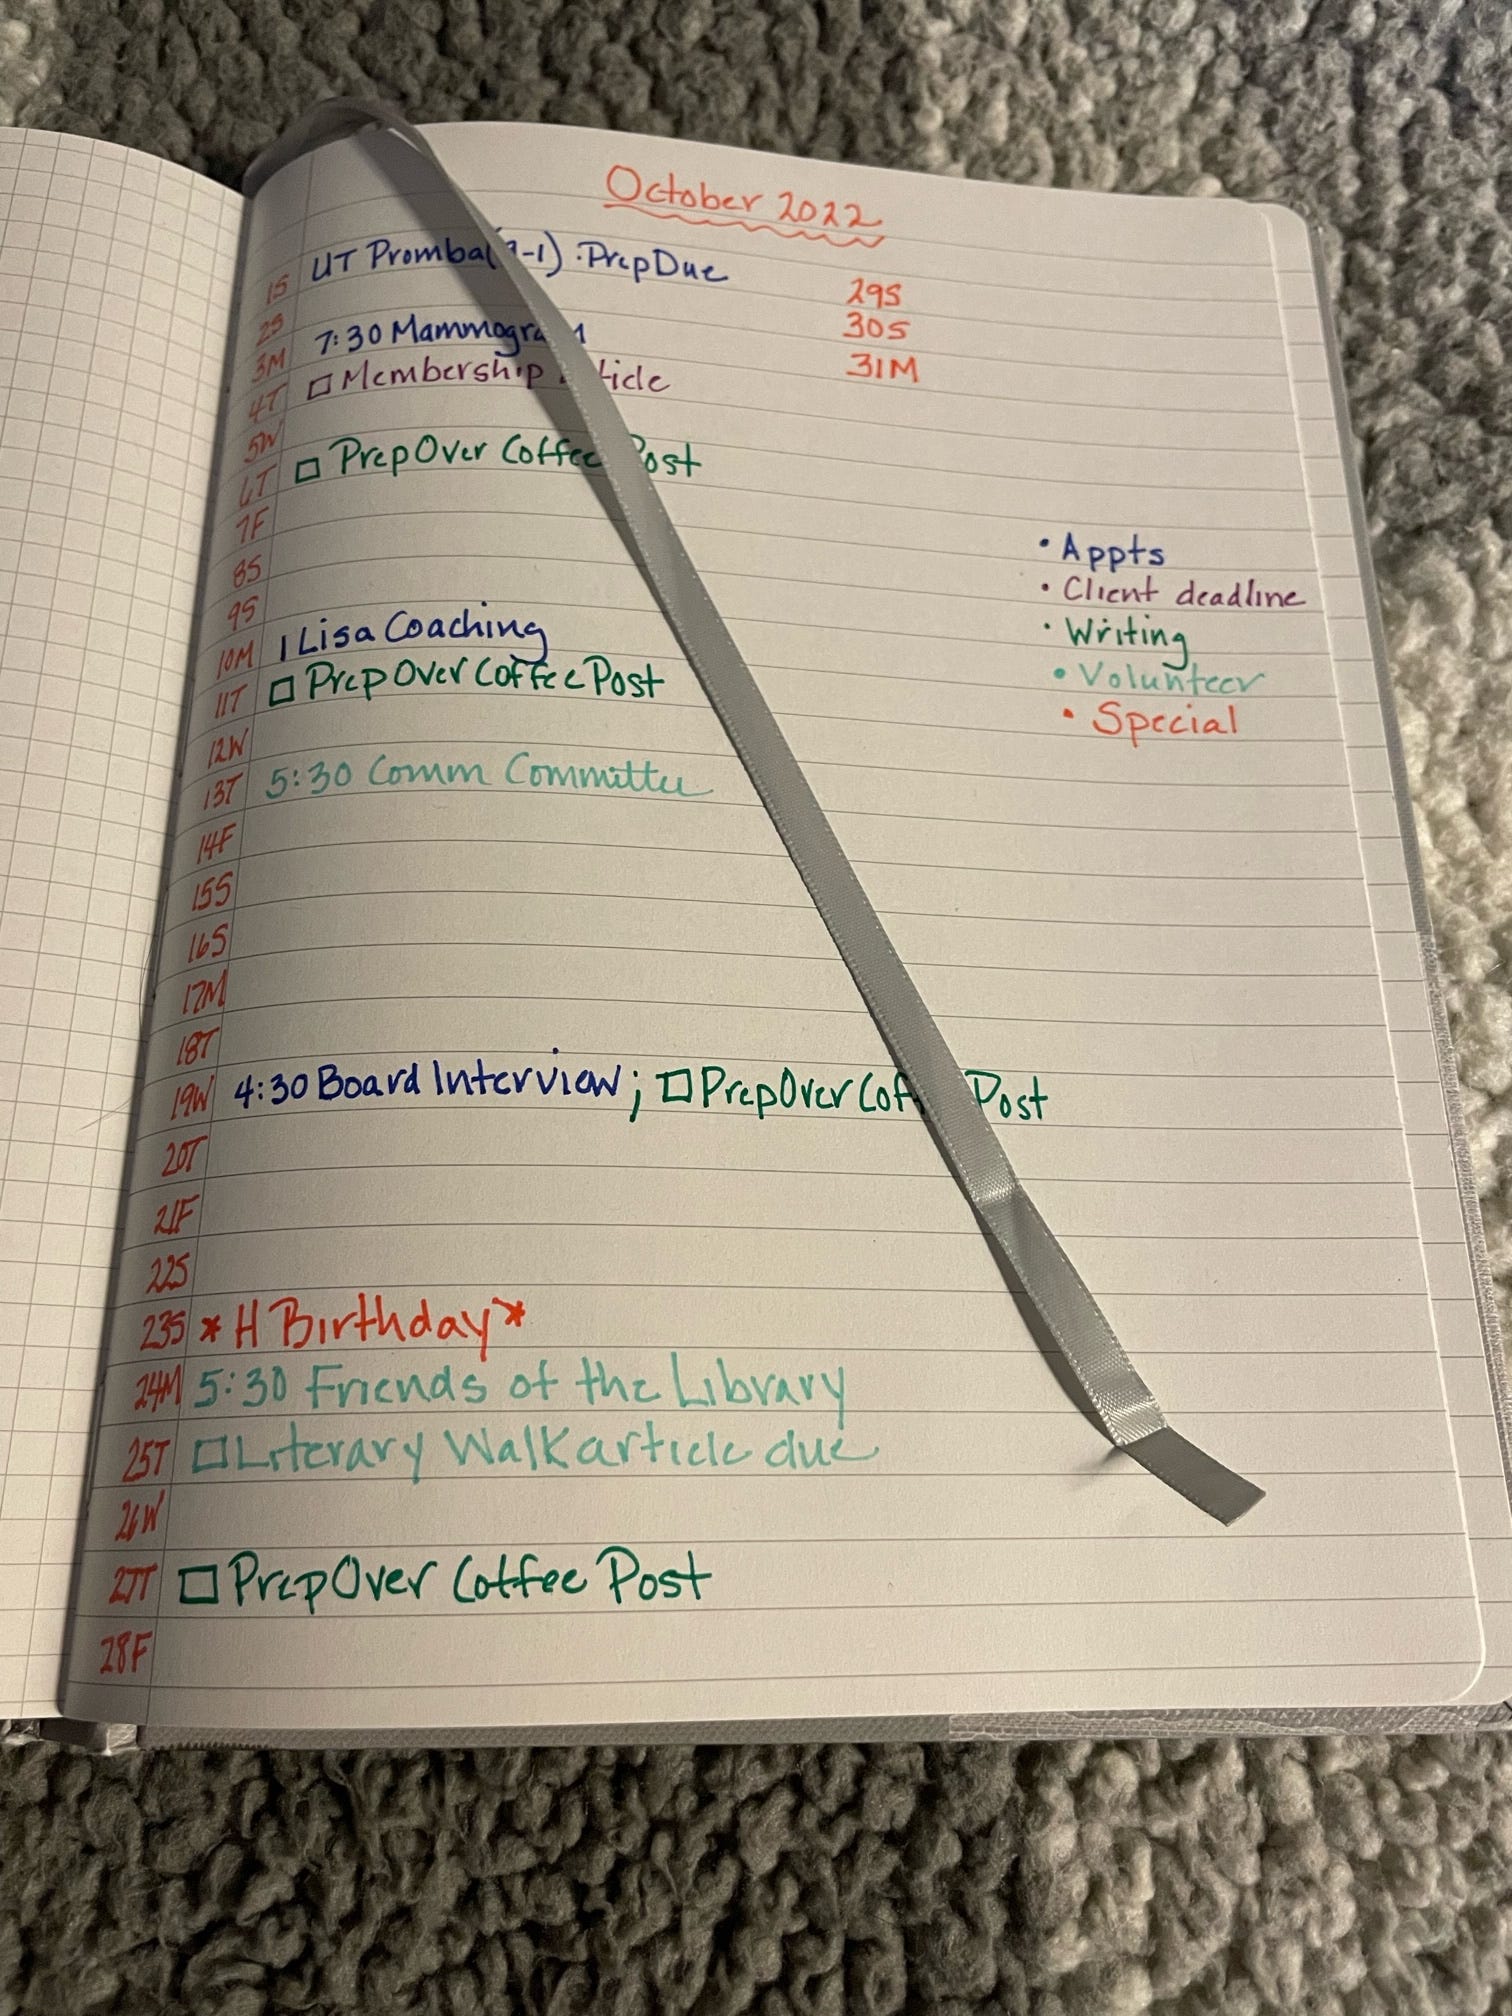 October 2022
1S UT Promba( -1) · Prep Due
2S
3M 7:30 Mammogram
4T □ Membership
5W
6T □ Prep Over Coffee Post
7F
8S
9S
10M 1 Lisa Coaching
11T □ Prep Over Coffee Post
12W
13T 5:30 Comm Committee
14F
15S
16S
17M
18T
19W 4:30 Board Interview; □ Prep Over Coffee Post
20T
21F
22S
23S *H Birthday*
24M 5:30 Friends of the Library
25T □ Literary Walk article due
26W
27T □ Prep Over Coffee Post
28F
29S
30S
31M
• Appts
• Client deadline
• Writing
• Volunteer
• Special